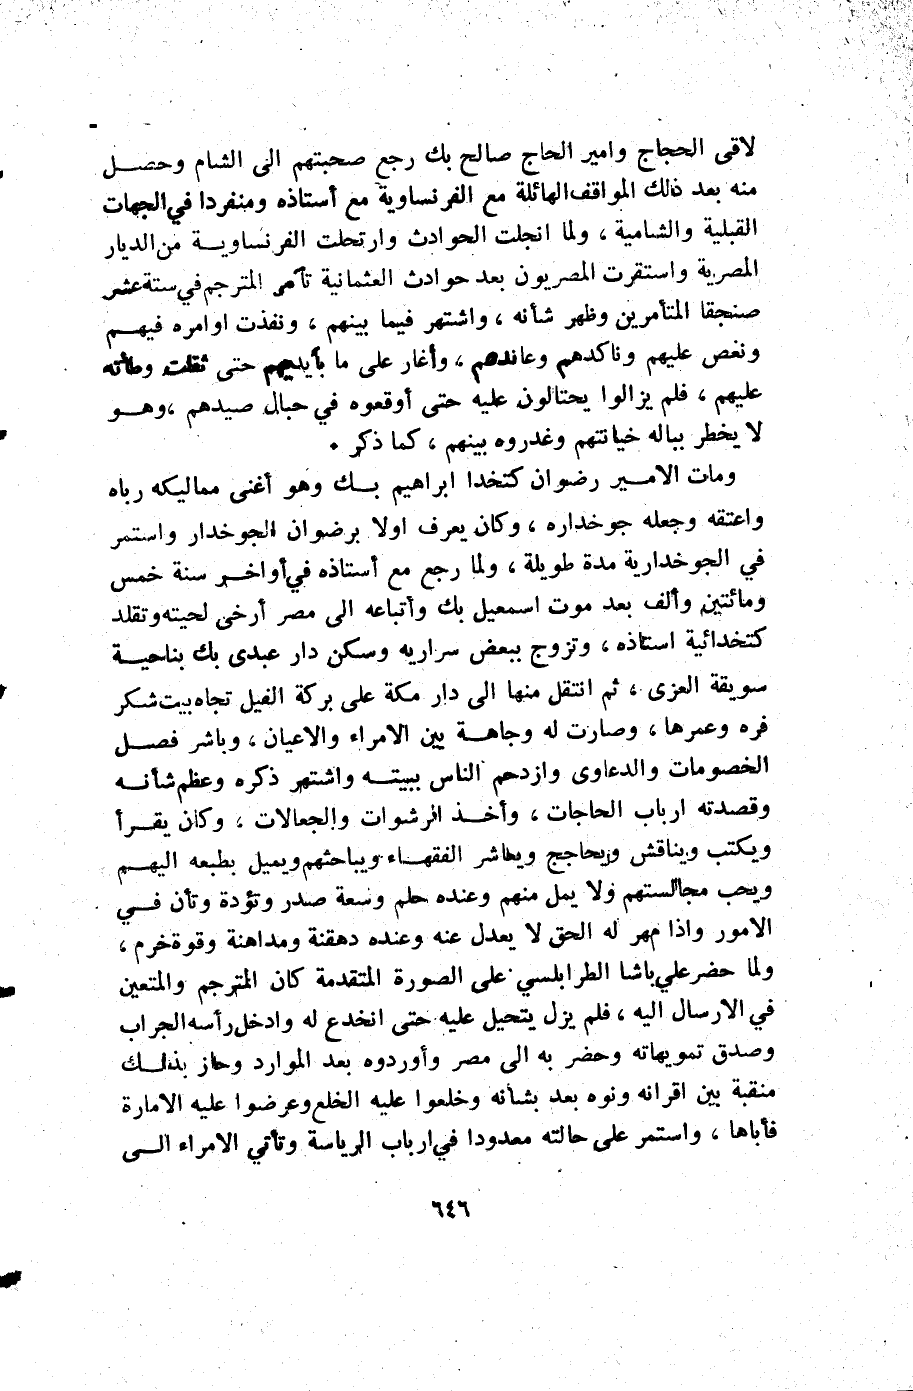 لاقى الحجاج وامير الحاج صالح بك رجع صحبتهم الى الشام وحصل
منه بعد ذلك المواقف الهائلة مع الفرنساوية مع أستاذه ومنفردا في الجهات
القبلية والشامية ، ولما انجلت الحوادث وارتحلت الفرنساوية من الديار
المصرية واستقرت المصريون بعد حوادث العثمانية تأمر المترجم في ستة عشر
صنجقا المتأمرين وظهر شأنه ، واشتهر فيما بينهم ، ونفذت اوامره فيهم
ونغص عليهم وناكدهم وعاندهم ، وأغار على ما بأيديهم حتى ثقلت وطأته
عليهم ، فلم يزالوا يحتالون عليه حتى أوقعوه في حبال صيدهم ، وهو
لا يخطر بباله خيانتهم وغدروه بينهم ، كما ذكر .
ومات الامير رضوان كتخدا ابراهيم بك وهو أغنى مماليكه رباه
واعتقه وجعله جوخداره ، وكان يعرف اولا برضوان الجوخدار واستمر
في الجوخدارية مدة طويلة ، ولما رجع مع أستاذه في أواخر سنة خمس
ومائتين وألف بعد موت اسمعيل بك وأتباعه الى مصر أرخى لحيته وتقلد
كتخدائية استاذه ، وتزوج ببعض سراريه وسكن دار عبدى بك بناحية
سويقة العزى ، ثم انتقل منها الى دار مكة على بركة الفيل تجاه بيت شكر
فره وعمرها ، وصارت له وجاهة بين الامراء والاعيان ، وباشر فصل
الخصومات والدعاوى وازدحم الناس ببيته واشتهر ذكره وعظم شأنه
وقصدته ارباب الحاجات ، وأخذ الرشوات والجعالات ، وكان يقرأ
ويكتب ويناقش ويحاجج ويعاشر الفقهاء ويباحثهم ويميل بطبعه اليهم
ويحب مجالستهم ولا يمل منهم وعنده حلم وسعة صدر وتؤدة وتأن في
الامور واذا مهر له الحق لا يعدل عنه وعنده دهقنة ومداهنة وقوة خرم ،
ولما حضر علي باشا الطرابلسي على الصورة المتقدمة كان المترجم والمتعين
في الارسال اليه ، فلم يزل يتحيل عليه حتى انخدع له وادخل رأسه الجراب
وصدق تمويهاته وحضر به الى مصر وأوردوه بعد الموارد وحاز بذلك
منقبة بين اقرانه ونوه بعد بشأنه وخلعوا عليه الخلع وعرضوا عليه الامارة
فأباها ، واستمر على حالته معدودا في ارباب الرياسة وتأتي الامراء الى
٦٤٦